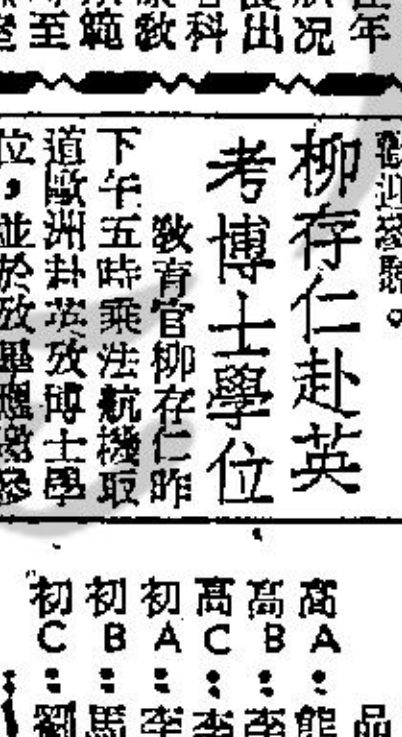 年
况
出
科
敎
範
至
歡迎參觀。
柳存仁赴英
考博士學位
敎育官柳存仁昨
下午五時乘法航機取
道歐洲赴英攷博士學
位，並於攷畢應邀參
品
高A：熊
高B：李
高C：李
初A：李
初B：馬
初C：劉